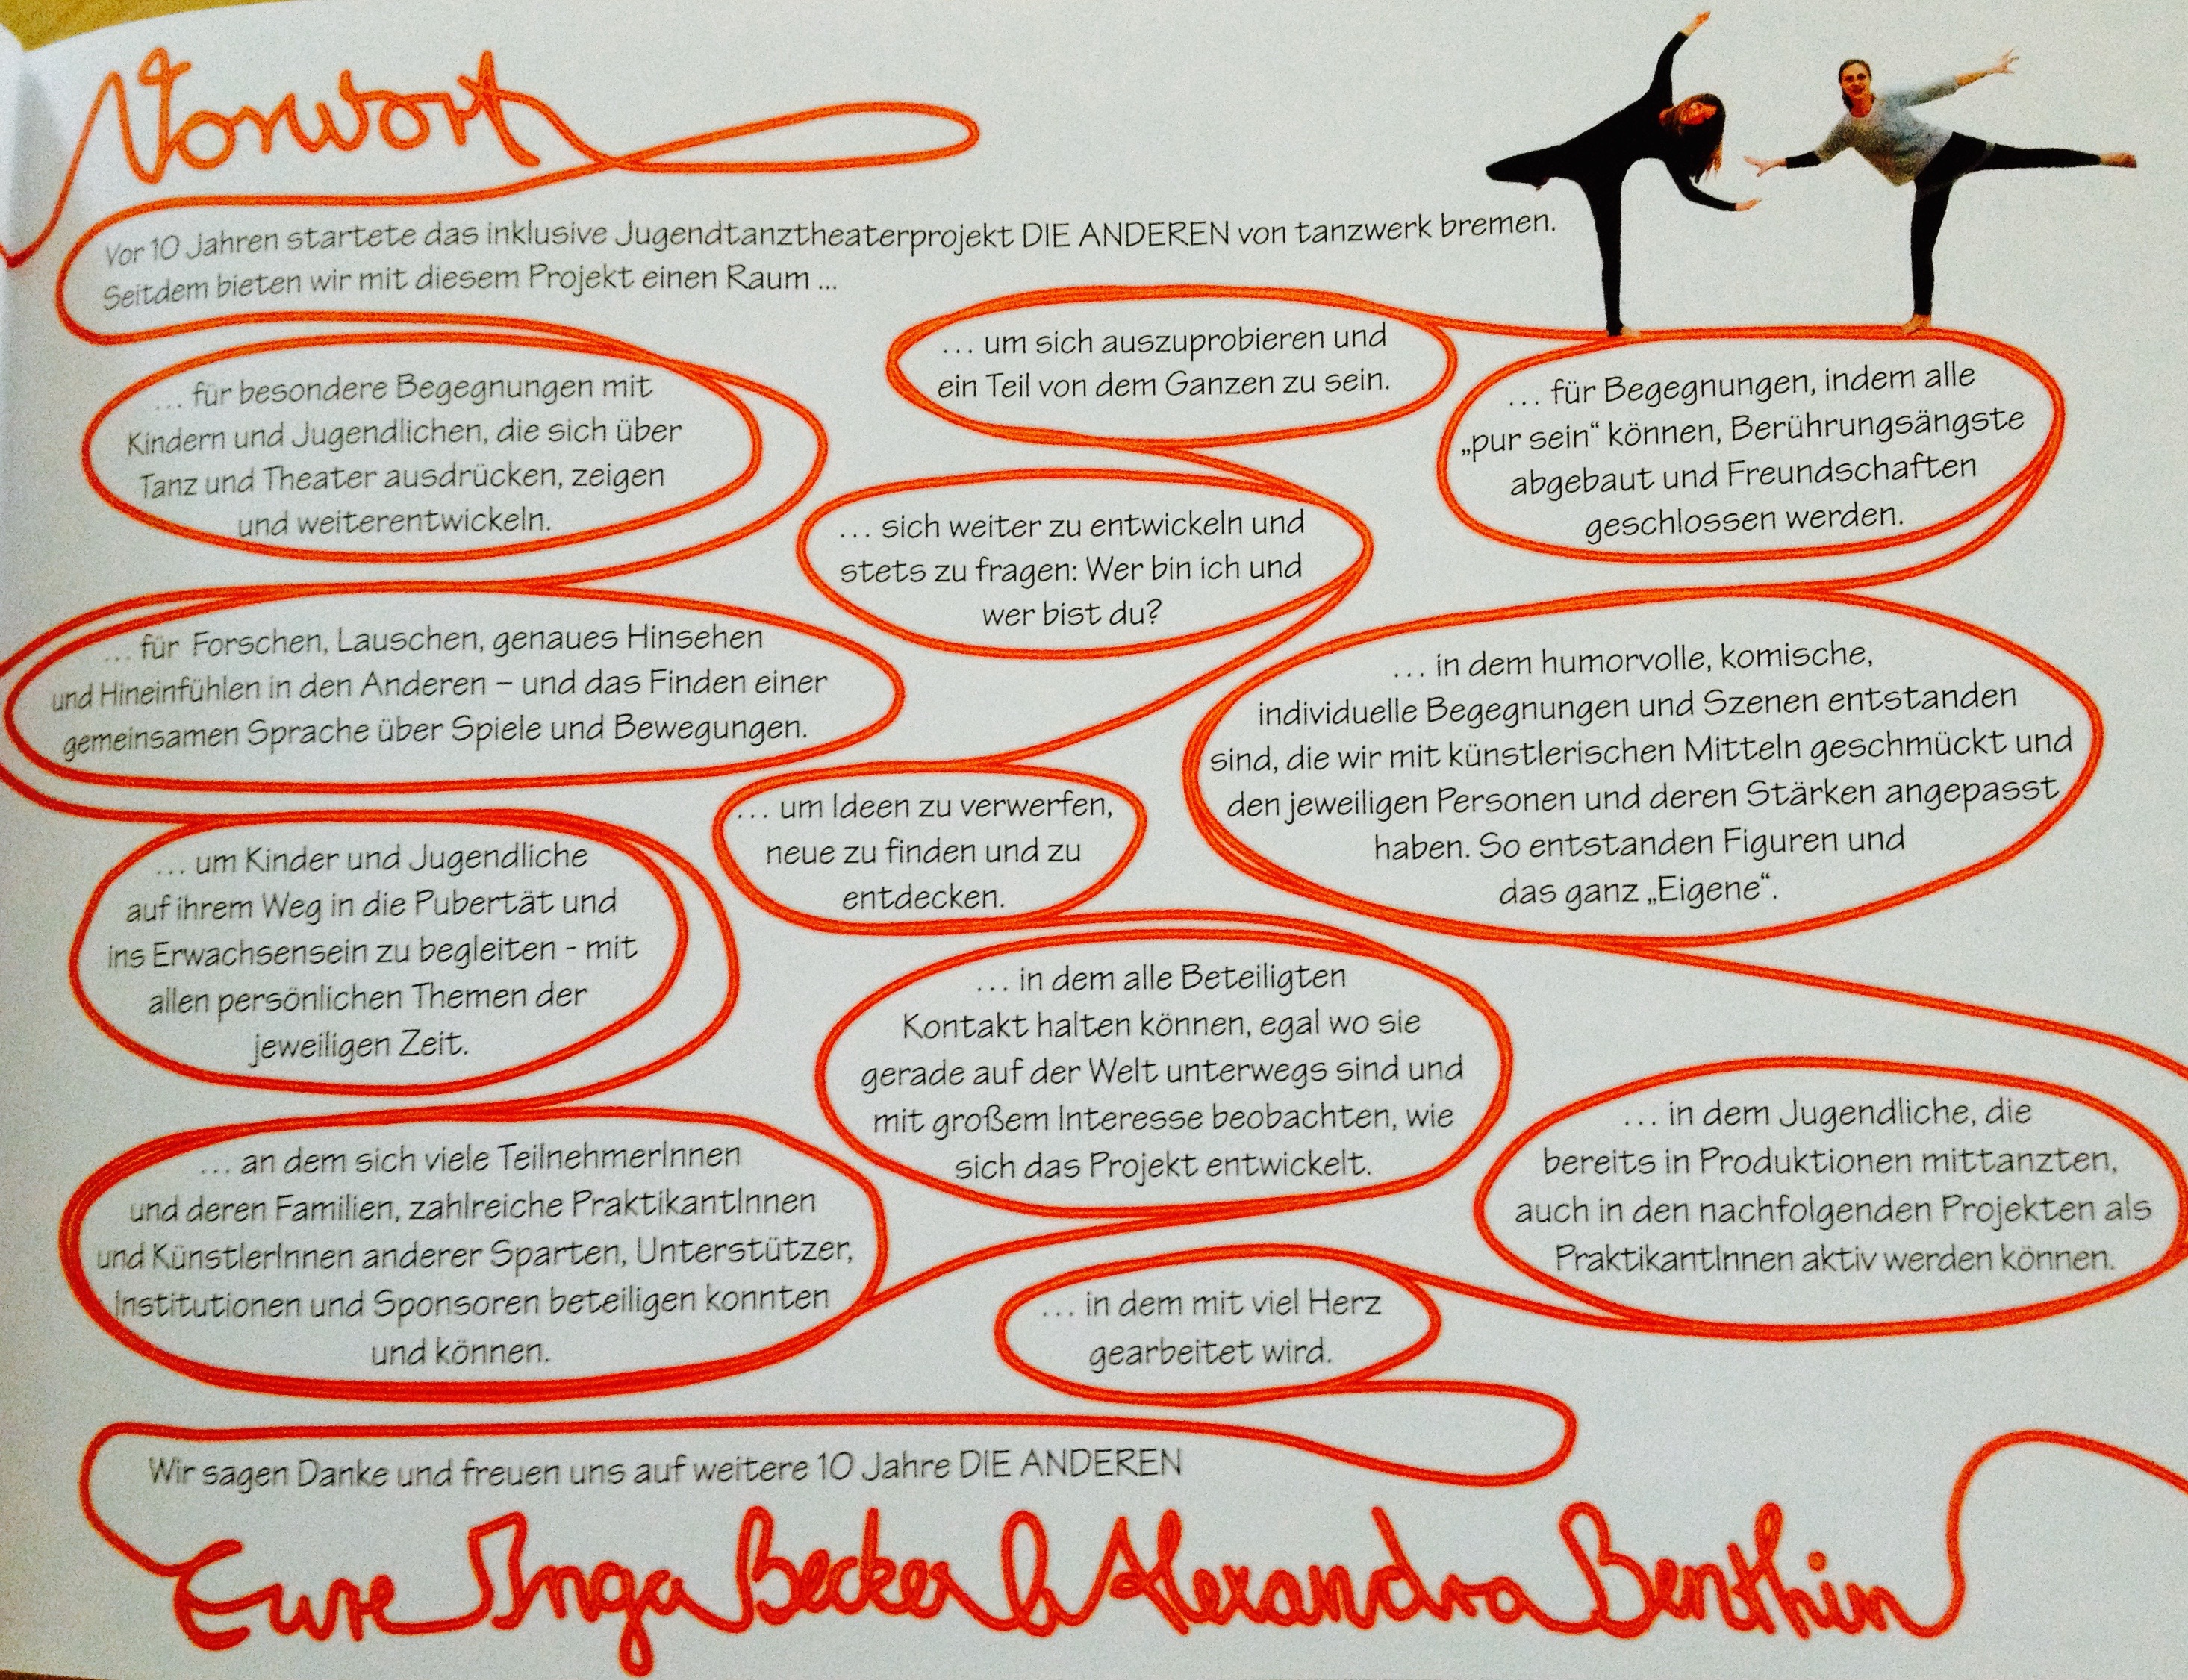 Vorwort
Vor 10 Jahren startete das inklusive Jugendtanztheaterprojekt DIE ANDEREN von tanzwerk bremen.
Seitdem bieten wir mit diesem Projekt einen Raum ...
... für besondere Begegnungen mit
Kindern und Jugendlichen, die sich über
Tanz und Theater ausdrücken, zeigen
und weiterentwickeln.
... für Forschen, Lauschen, genaues Hinsehen
und Hineinfühlen in den Anderen – und das Finden einer
gemeinsamen Sprache über Spiele und Bewegungen.
... um Kinder und Jugendliche
auf ihrem Weg in die Pubertät und
ins Erwachsensein zu begleiten - mit
allen persönlichen Themen der
jeweiligen Zeit.
... an dem sich viele TeilnehmerInnen
und deren Familien, zahlreiche PraktikantInnen
und KünstlerInnen anderer Sparten, Unterstützer,
Institutionen und Sponsoren beteiligen konnten
und können.
... um sich auszuprobieren und
ein Teil von dem Ganzen zu sein.
... sich weiter zu entwickeln und
stets zu fragen: Wer bin ich und
wer bist du?
... um Ideen zu verwerfen,
neue zu finden und zu
entdecken.
... in dem alle Beteiligten
Kontakt halten können, egal wo sie
gerade auf der Welt unterwegs sind und
mit großem Interesse beobachten, wie
sich das Projekt entwickelt.
... für Begegnungen, indem alle
„pur sein“ können, Berührungsängste
abgebaut und Freundschaften
geschlossen werden.
... in dem humorvolle, komische,
individuelle Begegnungen und Szenen entstanden
sind, die wir mit künstlerischen Mitteln geschmückt und
den jeweiligen Personen und deren Stärken angepasst
haben. So entstanden Figuren und
das ganz „Eigene“.
... in dem Jugendliche, die
bereits in Produktionen mittanzten,
auch in den nachfolgenden Projekten als
PraktikantInnen aktiv werden können.
... in dem mit viel Herz
gearbeitet wird.
Wir sagen Danke und freuen uns auf weitere 10 Jahre DIE ANDEREN
Eure Inga Becker & Alexandra Benthin